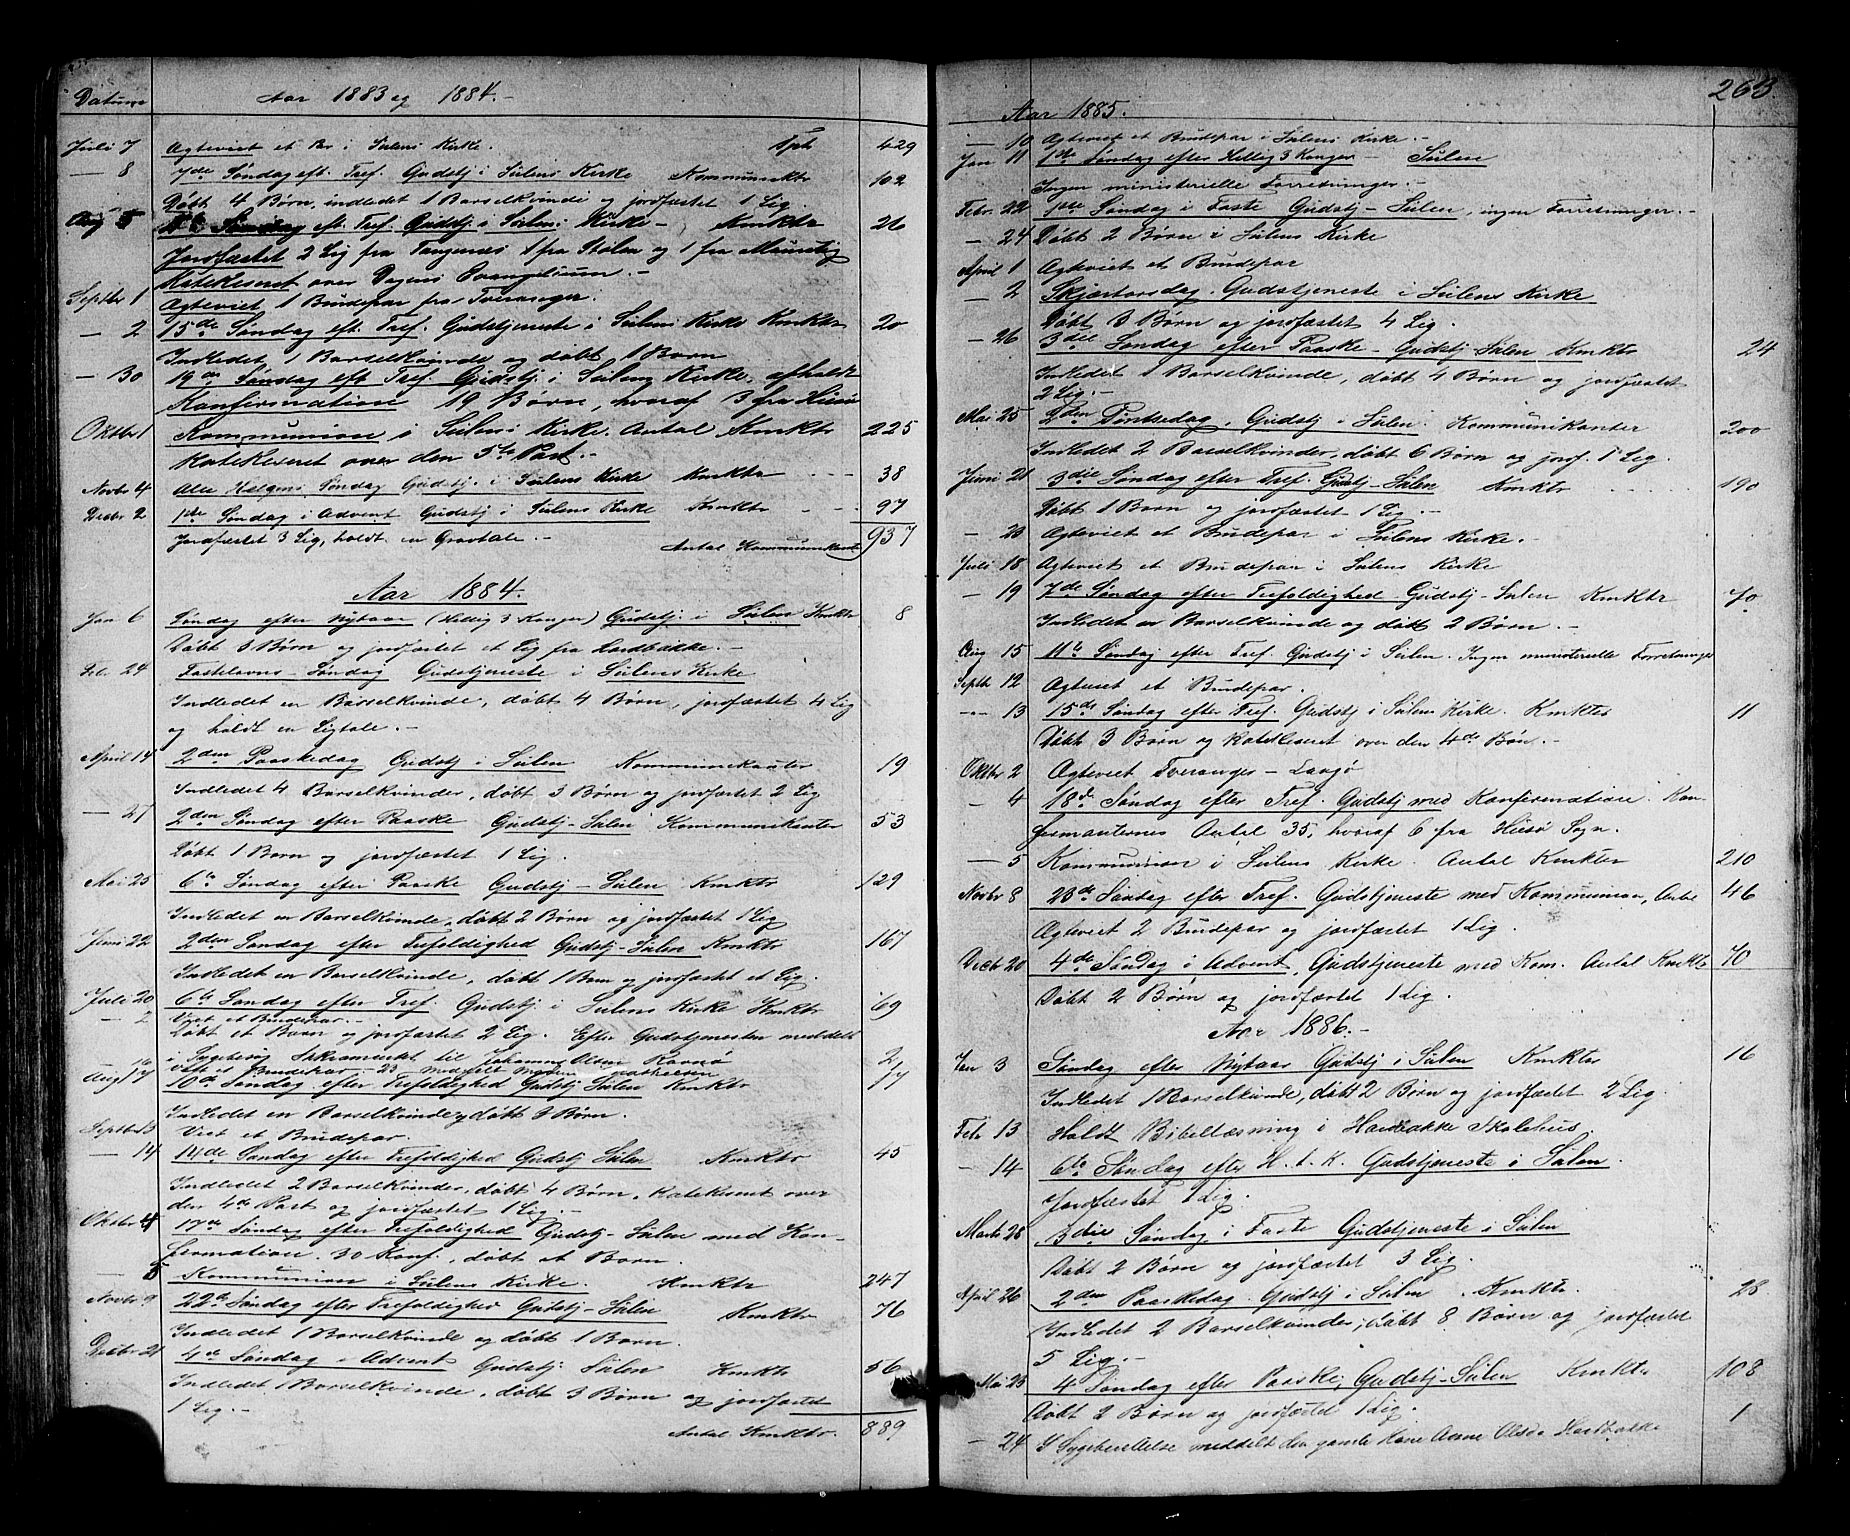 Datum
Aar 1883 og 1884.-
Juli 7 Agteviet et Par i Sulens Kirke. Tpt 429
— 8 7de Søndag eft. Tref. Gudstj i Sulens Kirke Kommuniktr 102
Døbt 4 Børn, indledet 1 Barselkvinde og jordfæstet 1 Lig.
Aug 5 Søndag eft. Tref. Gudstj i Sulens Kirke - Kmktr 26
Jordfæstet 2 Lig fra Tangenes 1 fra Stolen og 1 fra
Katekiseret over Dagens Evangelium.-
Septbr 1 Agteviet 1 Budepar fra Tveranger.
— 2 15de Søndag eft. Tref. Gudstjeneste i Sulens Kirke Kmktr 20
Indledet 1 Barselkvinde og døbt 1 Barn
— 30 19de Søndag eft Tref. Gudstj. i Sulens Kirke, afholdt
Konfirmation 19 Børn, hvoraf 3 fra Husø
Oktbr 1 Kommunion i Sulens Kirke. Antal Kmktr 225
Katekiseret over den 5te Part.-
Novbr 4 Alle Helgens Søndag Gudstj. i Sulens Kirke Kmktr - - - 38
Decbr 2 1ste Søndag i Advent Gudstj i Sulens Kirke Kmktr - - . 97
Jordfæstet 3 Lig, holdt en Gravtale.-
Antal Kommunikanter 937
Aar 1884.
Jan 6 Søndag efter Nytaar (Hellig 3 Konger) Gudstj. i Sulens Kmktr 8
Døbt 3 Børn og jordfæstet et Lig fra Hardbakke.-
Feb. 24 Fastelavns-Søndag Gudstjeneste i Sulens Kirke
Indledet en Barselkvinde, døbt 4 Børn, jordfæstet 4 Lig
og holdt en Ligtale.-
April 14 2den Paaskedag Gudstj i Sulen Kommunikanter 19
Indledet 4 Barselkvinder, døbt 3 Børn og jordfæstet 2 Lig
— 27 2den Søndag efter Paaske Gudstj-Sulen Kommunikanter 53
Døbt 1 Barn og jordfæstet 1 Lig.
Mai 25 6te Søndag efter Paaske Gudstj-Sulen Kmktr 129
Indledet en Barselkvinde, døbt 2 Børn og jordfæstet 1 Lig
Juni 22 2den Søndag efter Trefoldighed Gudstj-Sulen Kmktr 167
Indledet en Barselkvinde, døbt 1 Barn og jordfæstet et Lig.
Juli 20 6te Søndag efter Tref. Gudstj. i Sulens Kirke Kmktr 69
— 2 Viet et Budepar.-
Døbt et Barn og jordfæstet 2 Lig. Efter Gudstjenesten meddelt
i Sygebesøg Sakramentet til Johanne Olsen Ravnø 2
Viet et Budepar - 23
Aug 17 10de Søndag efter Trefoldighed Gudstj Sulen Kmktr 77
Indledet en Barselkvinde, døbt 3 Børn.
Septbr 13 Viet et Budepar.
— 14 14de Søndag efter Trefoldighed Gudstj Sulen Kmktr 45
Indledet 2 Barselkvinder, døbt 4 Børn. Katekiseret over
den 4de Part og jordfæstet 1 Lig.-
Oktbr 4 17de Søndag efter Trefoldighed Gudstj-Sulen med Kon-
firmation. 30 Konf, døbt et Barn.
5 Kommunion i Sulens Kirke. Kmktr 247
Novbr 9 22de Søndag efter Trefoldighed Gudstj-Sulen Kmktr 76
Indledet 1 Barselkvinde og døbt 1 Barn.
Decbr 21 4de Søndag i Advent Gudstj- Sulen Kmktr 56
Indledet 1 Barselkvinde, døbt 3 Børn og jordfæstet
1 Lig.-
Antal Kmktr. 889
263
Aar 1885.
— 10 Agteviet et Budepar i Sulens Kirke.-
Jan 11 1ste Søndag efter Hellig 3 Konger - Sulen
Ingen ministerielle Forretninger.-
Febr. 22 1ste Søndag i Faste Gudstj-Sulen, ingen Forretninger.-
— 24 Døbt 2 Børn i Sulens Kirke
April 1 Agteviet et Budepar
— 2 Skjærtorsdag. Gudstjeneste i Sulens Kirke
Døbt 3 Børn og jordfæstet 4 Lig.
— 26 3die Søndag efter Paaske-Gudstj-Sulen Kmktr 24
Indledet 1 Barselkvinde, døbt 4 Børn og jordfæstet
2 Lig.-
Mai 25 2den Pintsedag, Gudstj i Sulen. Kommunikanter 200
Indledet 2 Barselkvinder, døbt 6 Børn og jorf. 1 Lig.
Juni 21 3die Søndag efter Tref. Gudstj-Sulen Kmktr 190
Døbt 1 Barn og jordfæstet 1 Lig.-
— 23 Agteviet et Budepar i Sulens Kirke.-
Juli 18 Agteviet et Budepar i Sulens Kirke
— 19 7de Søndag efter Trefoldighed Gudstj-Sulen Kmktr 70
Indledet en Barselkvinde og døbt 2 Børn.-
Aug 15 11te Søndag efter Tref. Gudstj i Sulen. Ingen ministerielle Forretninger
Septb 12 Agteviet et Budepar.
-"- 13 15de Søndag efter Tref. Gudstj i Sulens Kirke. Kmkter 11
Døbt 3 Børn og katekiseret over den 4de Bøn.-
Oktbr 2 Agteviet Tveranger - Langø
— 4 18de Søndag efter Tref. Gudstj med Konfirmation. Kon-
firmanternes Antal 35, hvoraf 6 fra Husø Sogn.
— 5 Kommunion i Sulens Kirke. Antal Kmkter 210
Novbr 8 23de Søndag efter Tref. Gudstjeneste med Kommunion, Antal 46
Agteviet 2 Budepar og jordfæstet 1 Lig.
Decbr 20 4de Søndag i Advent, Gudstjeneste med Kom. Antal Kmktr 70
Døbt 2 Børn og jordfæstet 1 Lig.
Aar 1886.-
Jan 3 Søndag efter Nytaar Gudstj i Sulen Kmktr 16
Indledet 1 Barselkvinde, døbt 2 Børn og jordfæstet 2 Lig.
Febr 13 Holdt Bibellæsning i Hardbakke Skolehus.
— 14 6te Søndag efter H. t. K. Gudstjeneste i Sulen.
Jordfæstet 1 Lig.
Marts 28 3die Søndag i Faste Gudstjeneste i Sulen
Døbt 2 Børn og jordfæstet 3 Lig.
April 26 2den Paaskedag. Gudstj i Sulen. Kmktr. 28
Indledet 2 Barselkvinder, døbt 8 Børn og jordfæstet
5 Lig.-
Mai 23 4 Søndag efter Paaske, Gudstj-Sulen Kmktr 108
Døbt 2 Børn og jordfæstet 1 Lig.
— 24 I Sygeberettelse meddelt den gamle Kone Anne Olsda Hardbakke 1